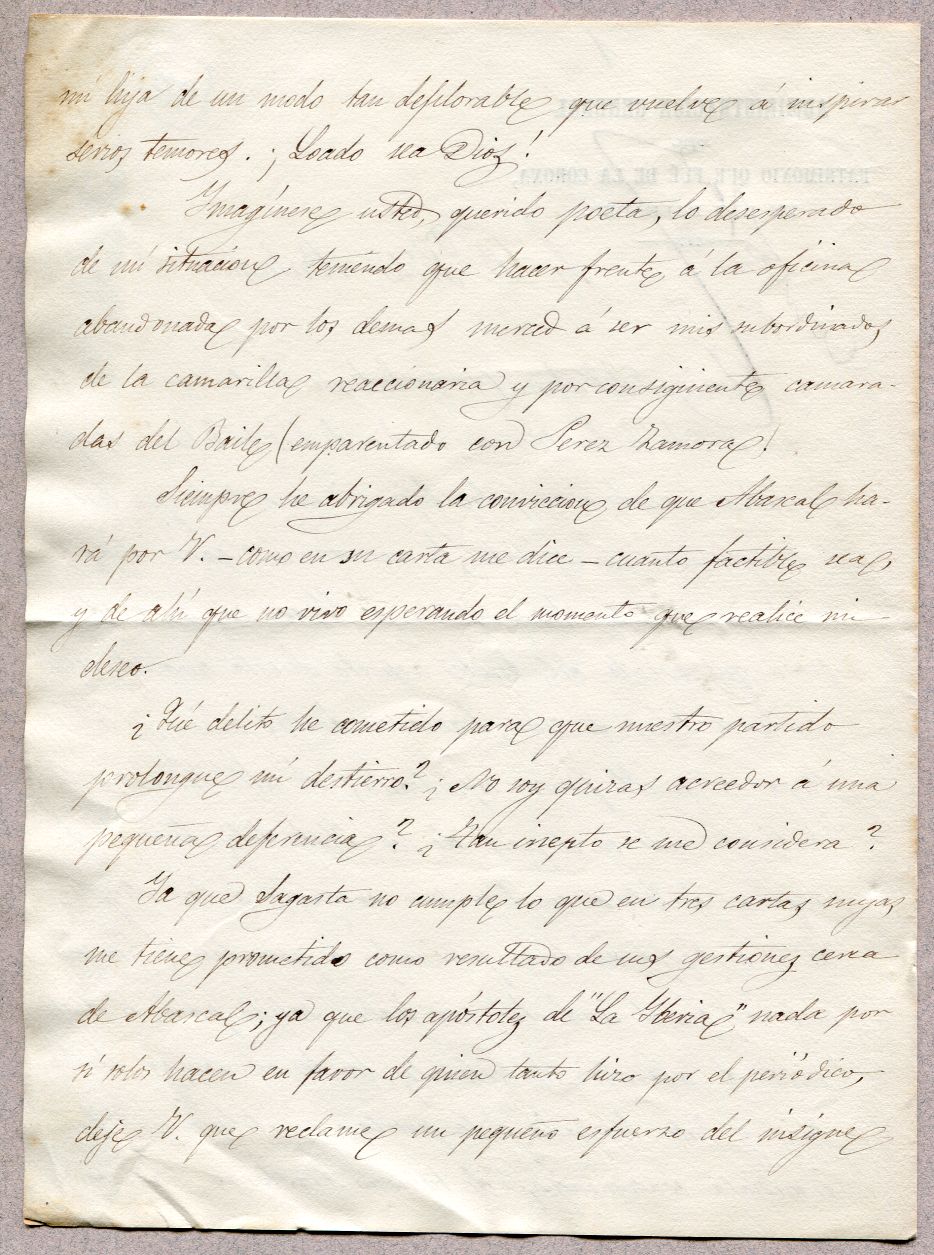 mi hija de un modo tan deplorable que vuelve á inspirar
sérios temores. ¡Loado sea Dios!
Imagínese usted, querido poeta, lo desesperado
de mi situacion teniendo que hacer frente á la oficina
abandonada por los demas merced á ser mis subordinados
de la camarilla reaccionaria y por consiguiente camara-
das del Baile (emparentado con Perez Zamora)
Siempre he abrigado la conviccion de que Abascal ha-
rá por V. – como en su carta me dice – cuanto factible sea,
y de ahí que no vivo esperando el momento que realice mi
deseo.
¿Qué delito he cometido para que nuestro partido
prolongue mi destierro? ¿No soy quizas acreedor á una
pequeña deferencia? ¿Tan inepto se me considera?
Ya que Sagasta no cumple lo que en tres cartas suyas
me tiene prometido como resultado de sus gestiones cerca
de Abascal; ya que los apóstoles de "La Iberia" nada por
sí solos hacen en favor de quien tanto hizo por el periódico,
deje V. que reclame un pequeño esfuerzo del insigne